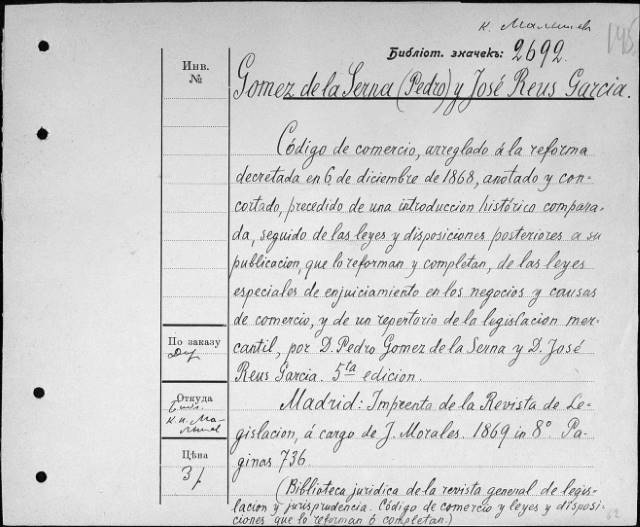 К. Малышев
Библіот. значекъ: 2692.
Инв.
№
Gomez de la Serna (Pedro) y José Reus Garcia.
Código de comercio, arreglado á la reforma
decretada en 6 de diciembre de 1868, anotado y con-
cortado, precedido de una introduccion histórico compara-
da, seguido de las leyes y disposiciones posteriores a su
publicacion, que lo reforman y completan, de las leyes
especiales de enjuiciamiento en los negocios y causas
de comercio, y de un repertorio de la legislacion mer-
cantil, por D. Pedro Gomez de la Serna y D. José
Reus Garcia. 5ta edicion.
Madrid: Imprenta de la Revista de Le-
gislacion, á cargo de J. Morales. 1869 in 8º. Pa-
ginas 736.
(Biblioteca juridica de la revista general de legis-
lacion y jurisprudencia. Código de comercio y leyes y disposi-
ciones que lo reforman ó completan.)
По заказу
Откуда
К. И. Ма-
лышев
Цѣна
3 р